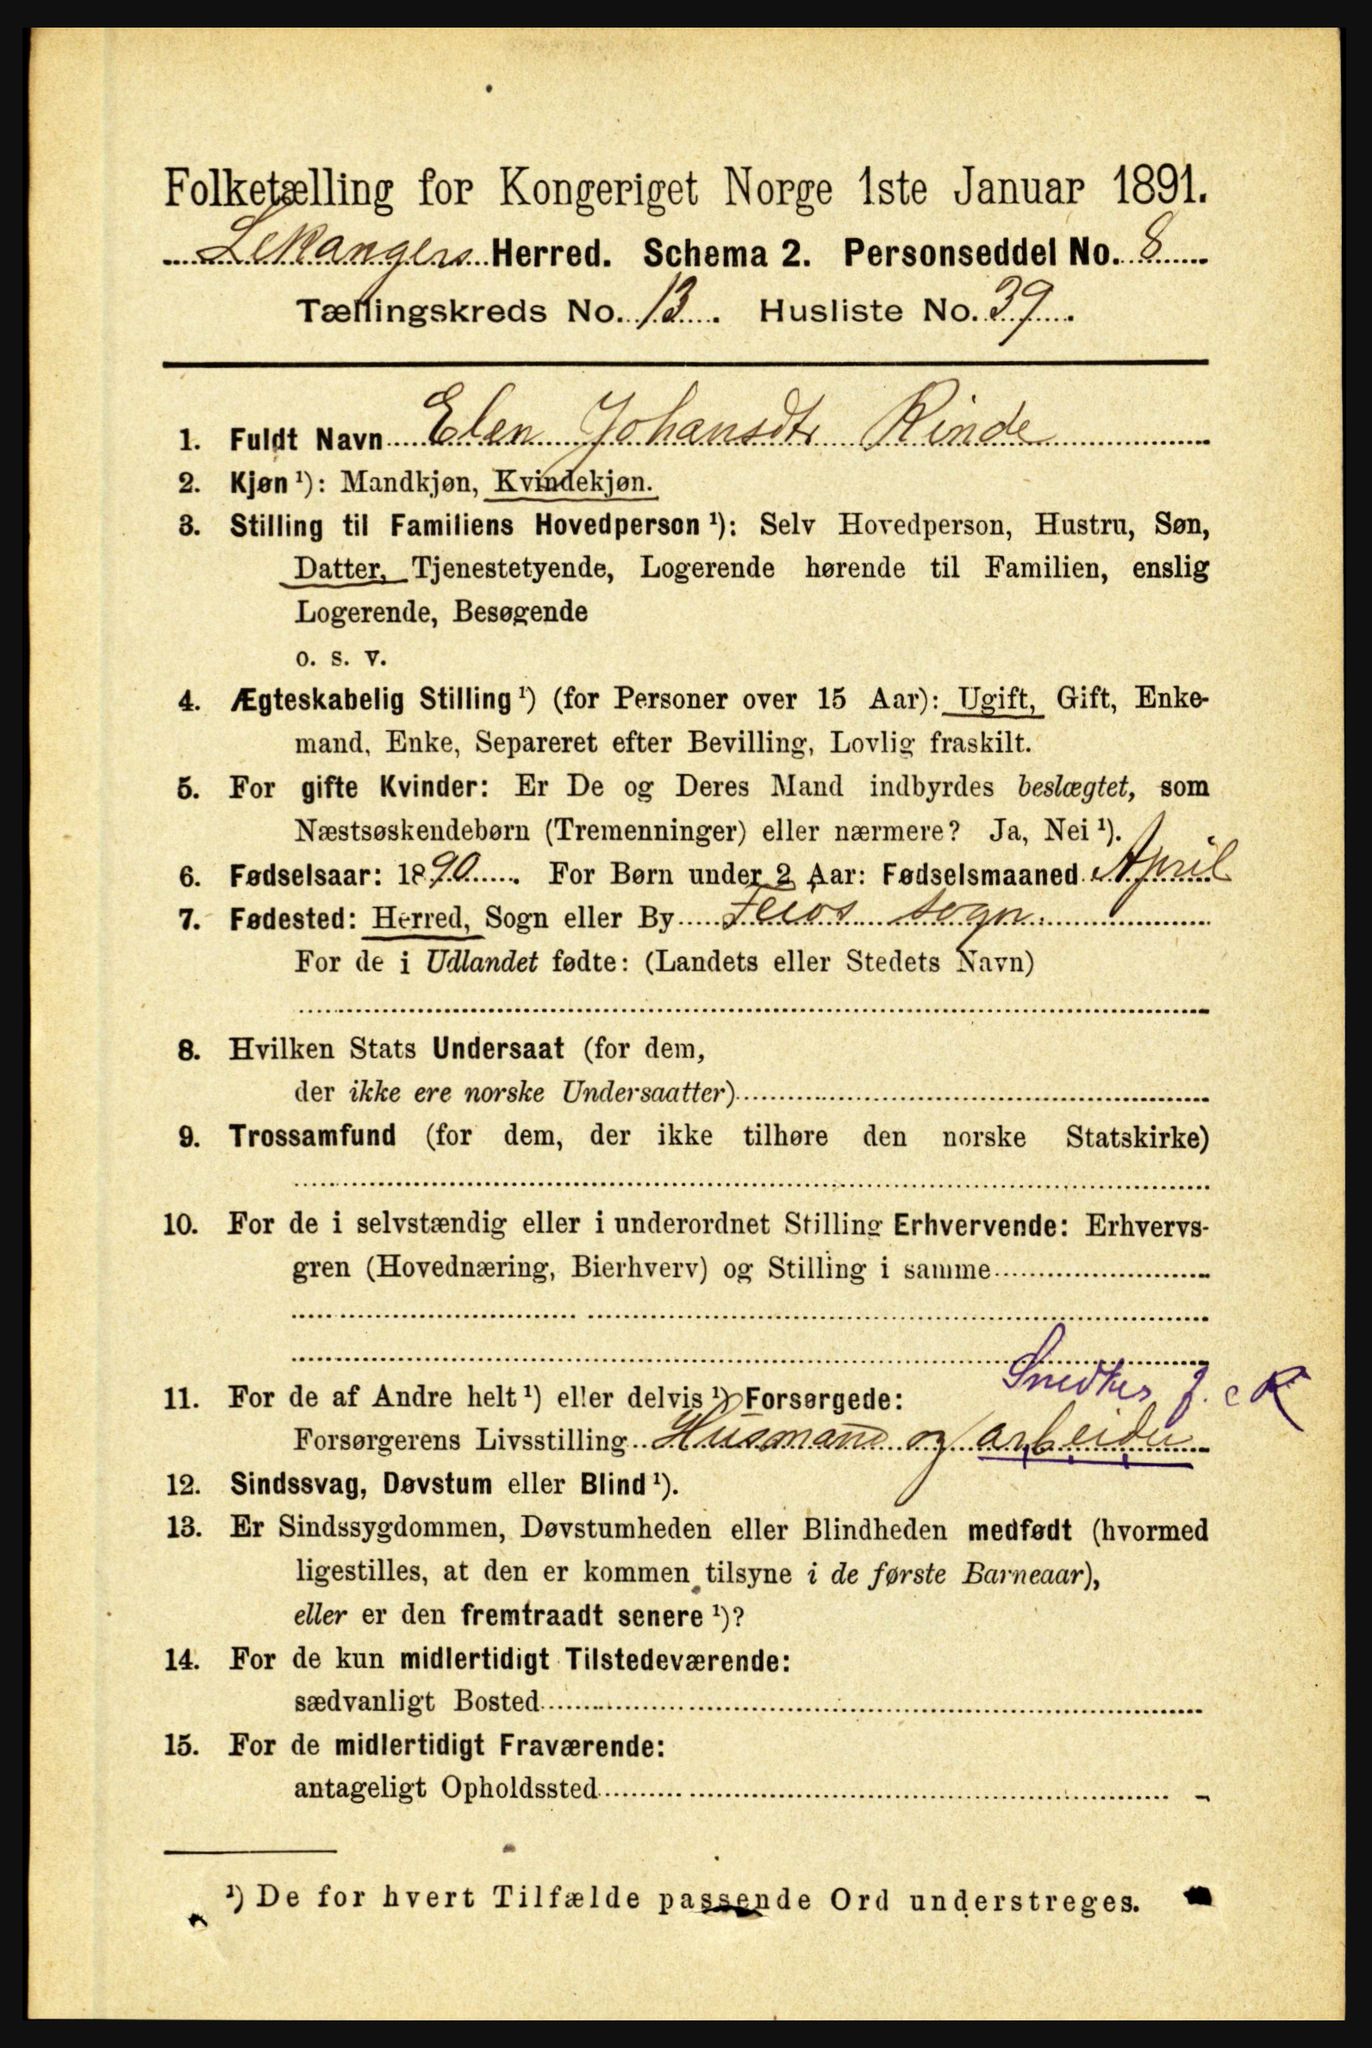 Folketælling for Kongeriget Norge 1ste Januar 1891.
Lekangers Herred. Schema 2. Personseddel No. 8
Tællingskreds No. 13. Husliste No. 39.
1. Fuldt Navn Elen Johansdtr Rinde
2. Kjøn ¹): Mandkjøn, Kvindekjøn.
3. Stilling til Familiens Hovedperson ¹): Selv Hovedperson, Hustru, Søn,
Datter, Tjenestetyende, Logerende hørende til Familien, enslig
Logerende, Besøgende
o. s. v.
4. Ægteskabelig Stilling ¹) (for Personer over 15 Aar): Ugift, Gift, Enke-
mand, Enke, Separeret efter Bevilling, Lovlig fraskilt.
5. For gifte Kvinder: Er De og Deres Mand indbyrdes beslægtet, som
Næstsøskendebørn (Tremenninger) eller nærmere? Ja, Nei ¹).
6. Fødselsaar: 1890. For Børn under 2 Aar: Fødselsmaaned April
7. Fødested: Herred, Sogn eller By Feios sogn.
For de i Udlandet fødte: (Landets eller Stedets Navn)
8. Hvilken Stats Undersaat (for dem,
der ikke ere norske Undersaatter)
9. Trossamfund (for dem, der ikke tilhøre den norske Statskirke)
10. For de i selvstændig eller i underordnet Stilling Erhvervende: Erhvervs-
gren (Hovednæring, Bierhverv) og Stilling i samme
Snedker f. e R
11. For de af Andre helt ¹) eller delvis ¹) Forsørgede:
Forsørgerens Livsstilling Husmand og arbeider
12. Sindssvag, Døvstum eller Blind ¹).
13. Er Sindssygdommen, Døvstumheden eller Blindheden medfødt (hvormed
ligestilles, at den er kommen tilsyne i de første Barneaar),
eller er den fremtraadt senere ¹)?
14. For de kun midlertidigt Tilstedeværende:
sædvanligt Bosted
15. For de midlertidigt Fraværende:
antageligt Opholdssted
¹) De for hvert Tilfælde passende Ord understreges.